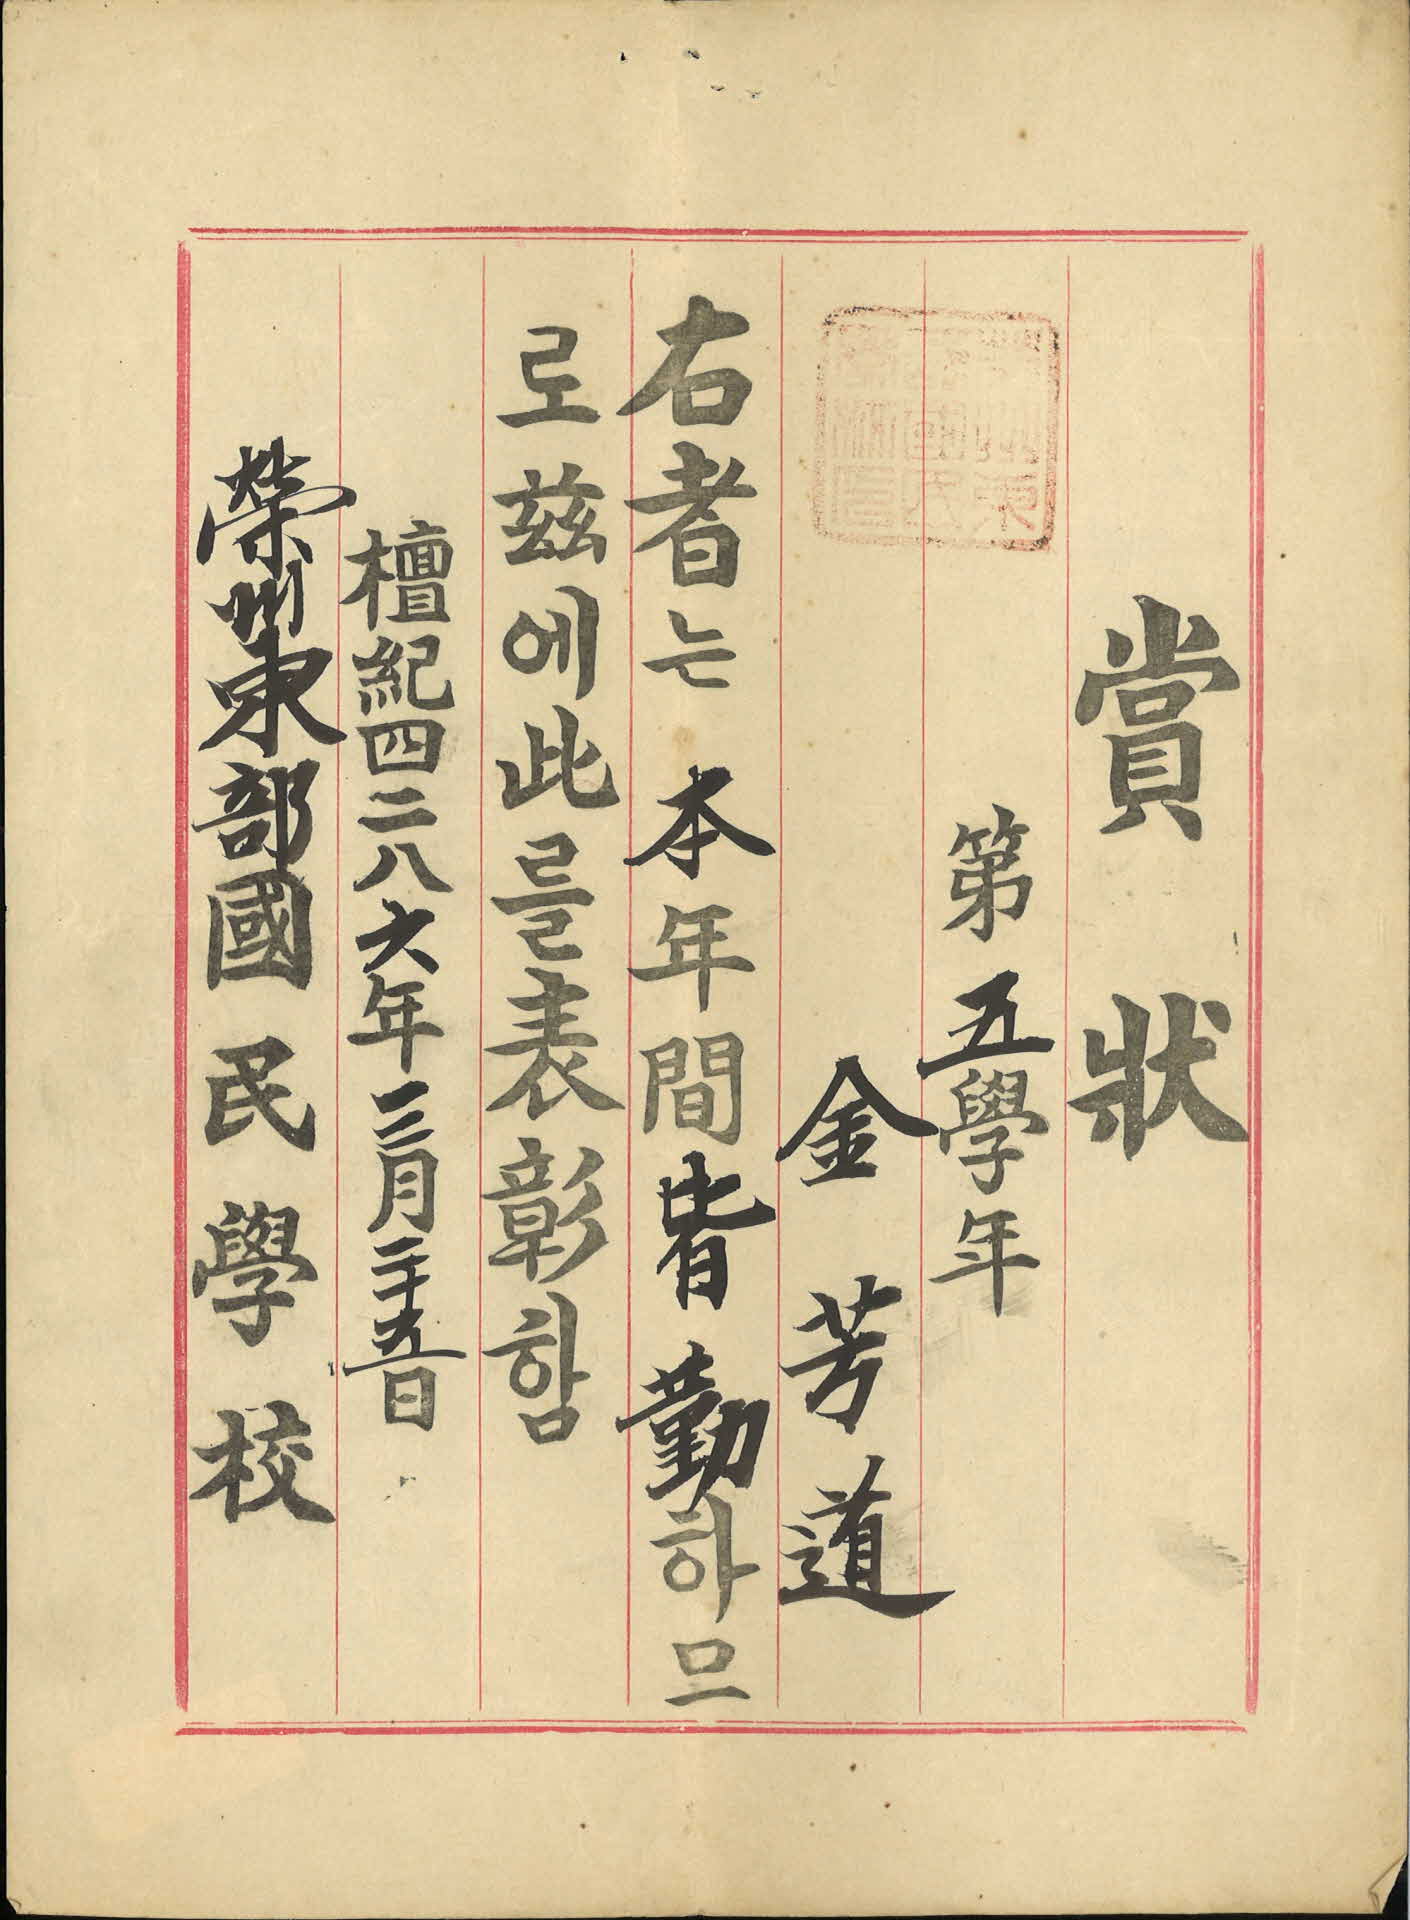 賞狀
第五學年
金芳道
右者는 本年間皆勤하므
로玆에此를表彰함
檀紀四二八六年三月二十五日
榮州東部國民學校